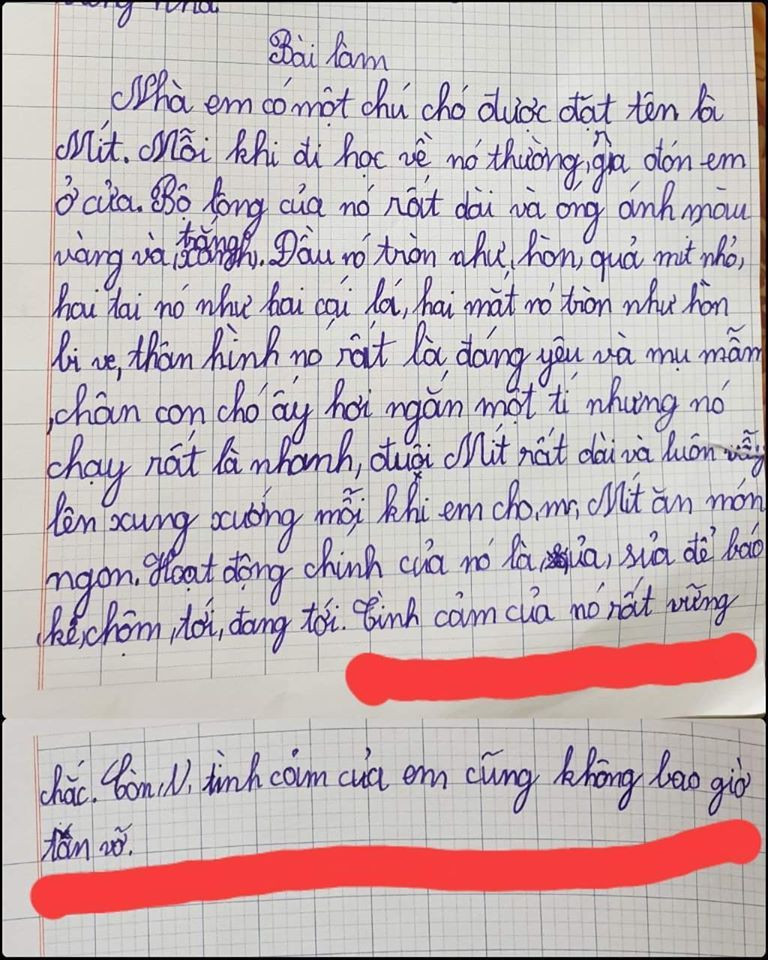 Bài làm
Nhà em có một chú chó được đặt tên là
Mít. Mỗi khi đi học về nó thường, ra đón em
ở cửa. Bộ lông của nó rất dài và óng ánh màu
vàng và, trắng. Đầu nó tròn như, hòn, quả mít nhỏ,
hai tai nó như hai cái lá, hai mắt nó tròn như hòn
bi ve, thân hình nó rất là, đáng yêu và mụ mẫm
, chân con chó ấy hơi ngắn một tí nhưng nó
chạy rất là nhanh, đuôi Mít rất dài và luôn vẫy
lên xung xướng mỗi khi em cho, mr, Mít ăn món
ngon. Hoạt động chính của nó là, sủa, sủa để báo
kẻ, chộm, tới, đang tới. Tình cảm của nó rất vững
chắc. Còn, N, tình cảm của em cũng không bao giờ
tan vỡ.